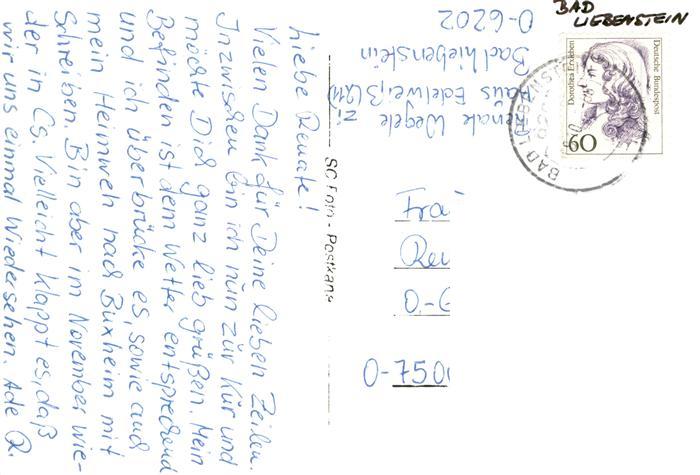 Liebe Renate!
Vielen Dank für Deine lieben Zeilen.
Inzwischen bin ich nun zur Kur und
möchte Dich ganz lieb grüßen. Mein
Befinden ist dem Wetter entsprechend
und ich überbrücke es, sowie auch
mein Heimweh nach Buxheim mit
Schreiben. Bin aber im November wie-
der in Cs. Vielleicht klappt es, daß
wir uns einmal Wiedersehen. Ade R.
SC Foto - Postkarte
Renate Wegele
Haus Edelweiß
Zi
Bad Liebenstein
O-6202
BAD
LIEBENSTEIN
Deutsche Bundespost
Dorothea Erxleben
60
BAD
Fra
Ren
O-750